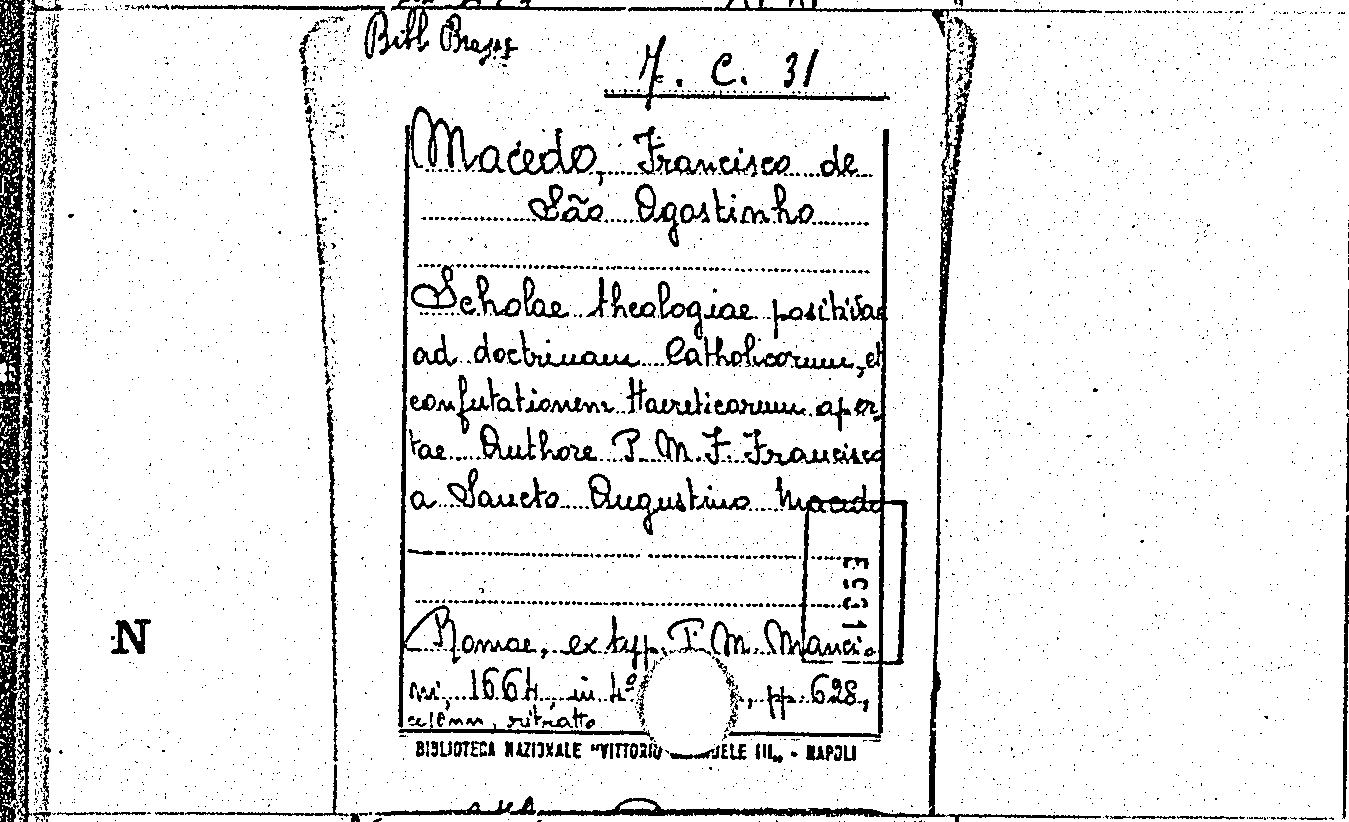 Bibl
7. C. 31
Macedo, Francisco de
São Agostinho
Scholae theologiae positivae
ad doctrinam Catholicorum, et
confutationem Haereticorum aper
tae Authore P. M. F. Francisco
a Sancto Augustino Macedo
E5631
Romae, ex typ. P. M. Manci
ni, 1664, in 4º , pp. 628,
ritratto
BIBLIOTECA NAZIONALE "VITTORIO ELE III„ - NAPOLI
N